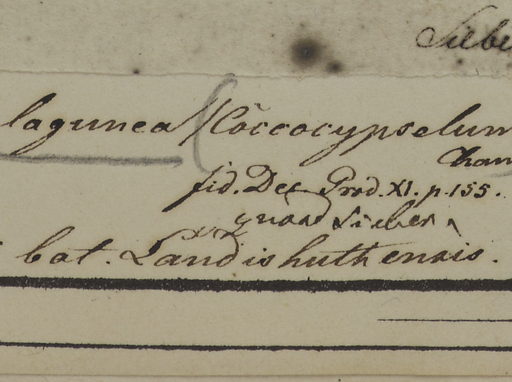 Siebe
lagunea (Coccocypselum
Cham
fid. Dec Prod. XI. p. 155.
Sieber
bot. Landishuthensis.